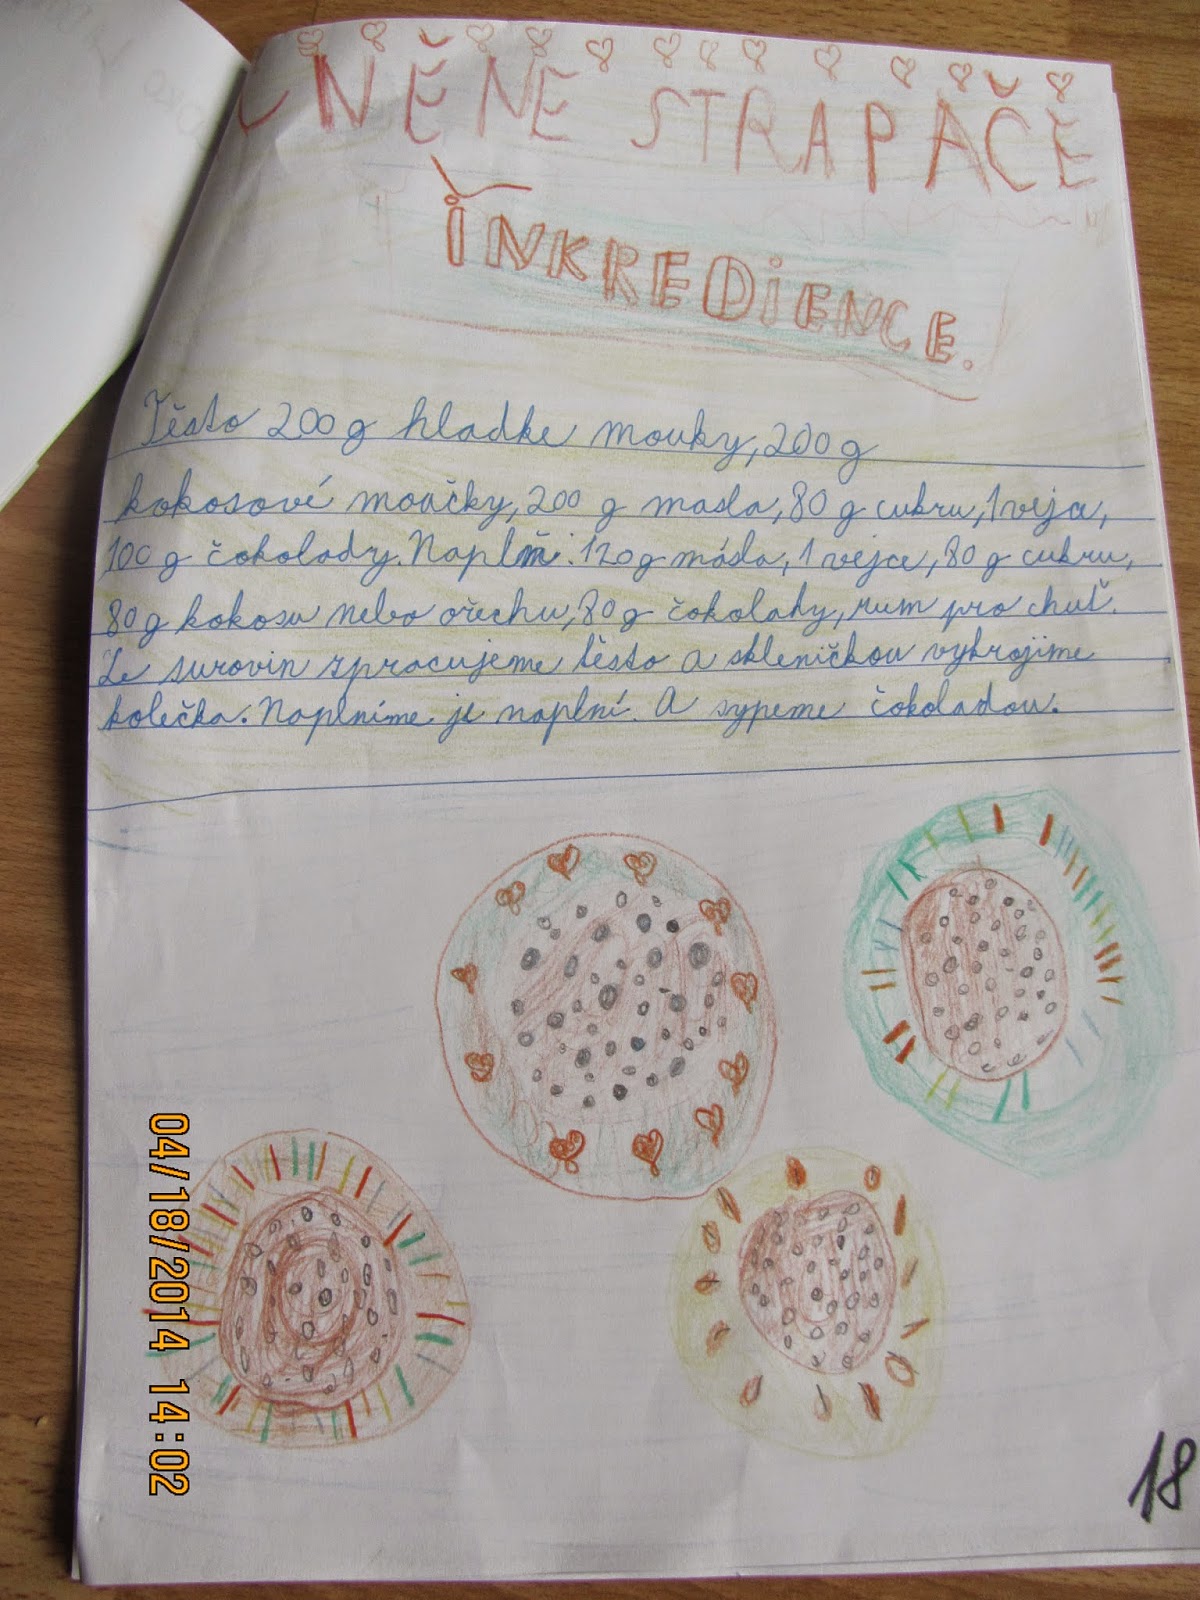 STRAPÁČE
INKREDIENCE.
Těsto 200 g hladke mouky, 200 g
kokosové moučky, 200 g masla, 80 g cukru, 1 vejce,
100 g čokolady. Naplň: 120 g másla, 1 vejce, 80 g cukru,
80 g kokosu nebo ořechu, 80 g čokolady, rum pro chuť.
Ze surovin zpracujeme těsto a skleničkou vykrojime
kolečka. Naplníme je naplní. A sypeme čokoladou.
04/18/2014 14:02
18